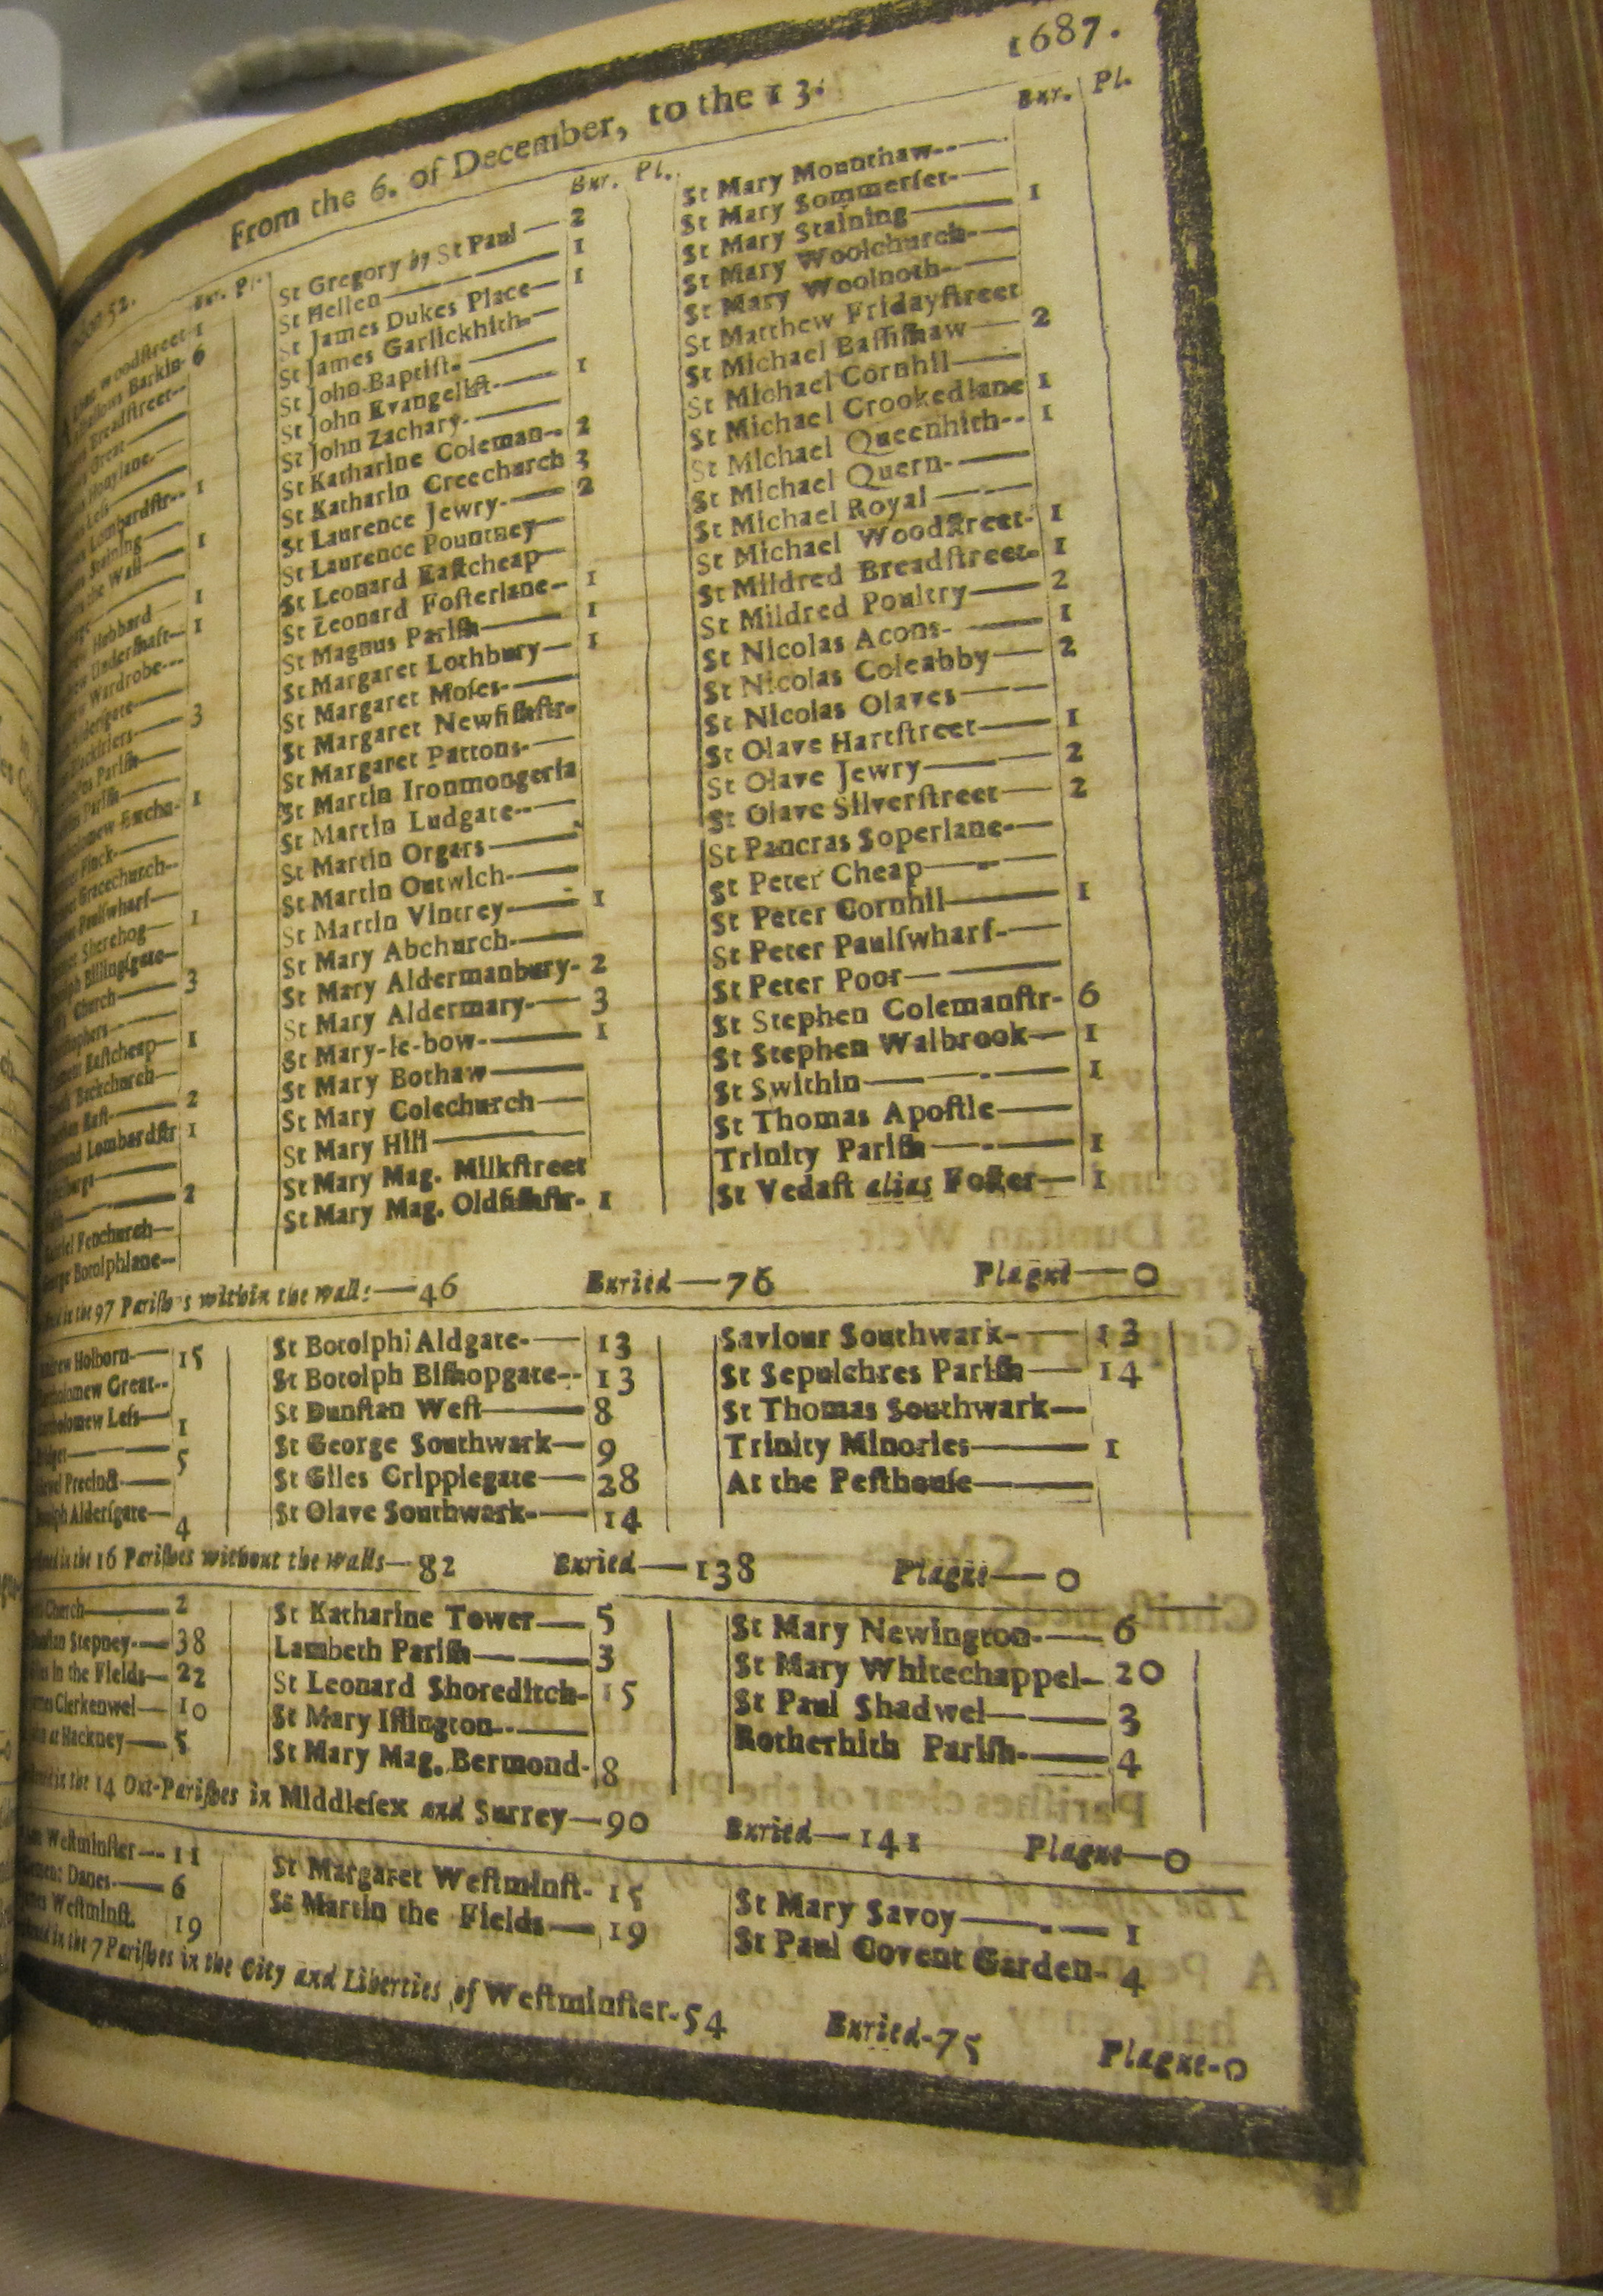 1687.
From the 6. of December, to the 13.
Bur. Pl.
Woodſtreet 1
Barkin- 6
Breadſtreet--
Great——
Honylane.—
Leſs——
Lombardſtr-- 1
Staining——
the Wall— 1
Hubbard — 1
Underſhaft— 1
Wardrobe---
Alderſgate——
Blackfriers— 3
Pariſh——
Pariſh——
Excha- 1
Finck——
Gracechurch--
Paulſwharf—
Sherehog— 1
Billingſgate—
Church—— 3
Eaſtcheap— 1
Backchurch—
Eaſt-—— 2
Lombardſtr 1
—— 2
Fenchurch—
Botolphlane--
Bur. Pl.
St Gregory by St Paul — 2
St Hellen——— 1
St James Dukes Place— 1
St James Garlickhith-—
St John Baptiſt.——
St John Evangeliſt-— 1
St John Zachary.——
St Katharine Coleman-- 2
St Katharin Creechurch 3
St Laurence Jewry-— 2
St Laurence Pountney—
St Leonard Eaſtcheap—
St Leonard Foſterlane— 1
St Magnus Pariſh—— 1
St Margaret Lothbury— 1
St Margaret Moſes-——
St Margaret Newfiſhſtr-
St Margaret Pattons-—
St Martin Ironmongerla
St Martin Ludgate--—
St Martin Orgars——
St Martin Outwich-——
St Martin Vintrey—— 1
St Mary Abchurch-——
St Mary Aldermanbury- 2
St Mary Aldermary-— 3
St Mary-le-bow-—— 1
St Mary Bothaw——
St Mary Colechurch—
St Mary Hill———
St Mary Mag. Milkſtreet
St Mary Mag. Oldfiſhſtr- 1
Bur. Pl.
St Mary Mounthaw--—
St Mary Sommerſet-—
St Mary Staining—— 1
St Mary Woolchurch-—
St Mary Woolnoth-—
St Matthew Fridayſtreet
St Michael Baſſiſhaw— 2
St Michael Cornhil——
St Michael Crookedlane 1
St Michael Queenhith-- 1
St Michael Quern-——
St Michael Royal ——
St Michael Woodſtreet- 1
St Mildred Breadſtreet- 1
St Mildred Poultry—— 2
St Nicolas Acons-—— 1
St Nicolas Coleabby— 2
St Nicolas Olaves——
St Olave Hartſtreet—— 1
St Olave Jewry——— 2
St Olave Silverſtreet— 2
St Pancras Soperlane-—
St Peter Cheap———
St Peter Cornhil—— 1
St Peter Paulſwharf-—
St Peter Poor———
St Stephen Colemanſtr- 6
St Stephen Walbrook— 1
St Swithin——— 1
St Thomas Apoſtle——
Trinity Pariſh——— 1
St Vedaſt alias Foſter— 1
in the 97 Pariſhes within the walls—46 Buried—76 Plague—0
Holborn-— 15
Great--
Leſs— 1
—— 5
Precinct-—
Alderſgate— 4
St Botolph Aldgate-— 13
St Botolph Biſhopgate-- 13
St Dunſtan Weſt—— 8
St George Southwark— 9
St Giles Cripplegate— 28
St Olave Southwark-— 14
Saviour Southwark-— 13
St Sepulchres Pariſh— 14
St Thomas Southwark—
Trinity Minories—— 1
At the Peſthouſe——
in the 16 Pariſhes without the walls—82 Buried—138 Plague—0
Church—— 2
Stepney-— 38
in the Fields— 22
Clerkenwel— 10
at Hackney— 5
St Katharine Tower— 5
Lambeth Pariſh—— 3
St Leonard Shoreditch- 15
St Mary Iſlington-—
St Mary Mag. Bermond- 8
St Mary Newington-— 6
St Mary Whitechappel— 20
St Paul Shadwel—— 3
Rotherhith Pariſh-— 4
in the 14 Out-Pariſhes in Middleſex and Surrey—90 Buried—141 Plague—0
Weſtminſter--- 11
Danes-—— 6
Weſtminſt. 19
St Margaret Weſtminſt- 15
St Martin the Fields— 19
St Mary Savoy——— 1
St Paul Covent Garden- 4
in the 7 Pariſhes in the City and Liberties of Weſtminſter-54 Buried-75 Plague-0